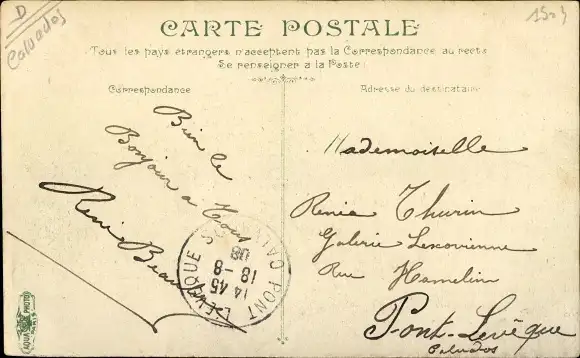 D
Calvados
1503
CARTE POSTALE
Tous les pays étrangers n'acceptent pas la Correspondance au recto
Se renseigner à la Poste
Correspondance
Adresse du destinataire
Bien le
Bonjour a Tous
Mademoiselle
Renée Thurin
Galerie Lexovienne
Rue Hamelin
Pont-Levêque
Calvados
PONT L'EVEQUE
CALV
14 45
18 -8
08
AQUA PHOTO
PARIS